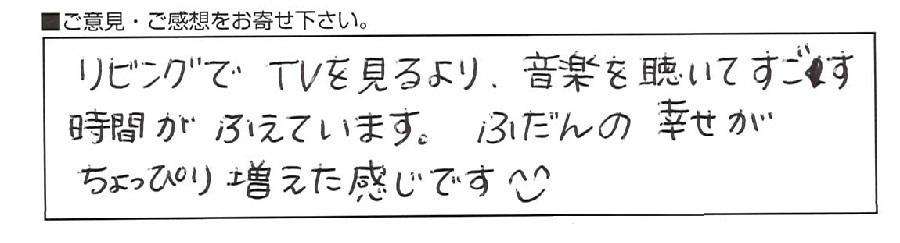 ■ご意見・ご感想をお寄せ下さい。
リビングで TVを見るより、音楽を聴いてすごす
時間が ふえています。 ふだんの 幸せが
ちょっぴり 増えた感じです^^